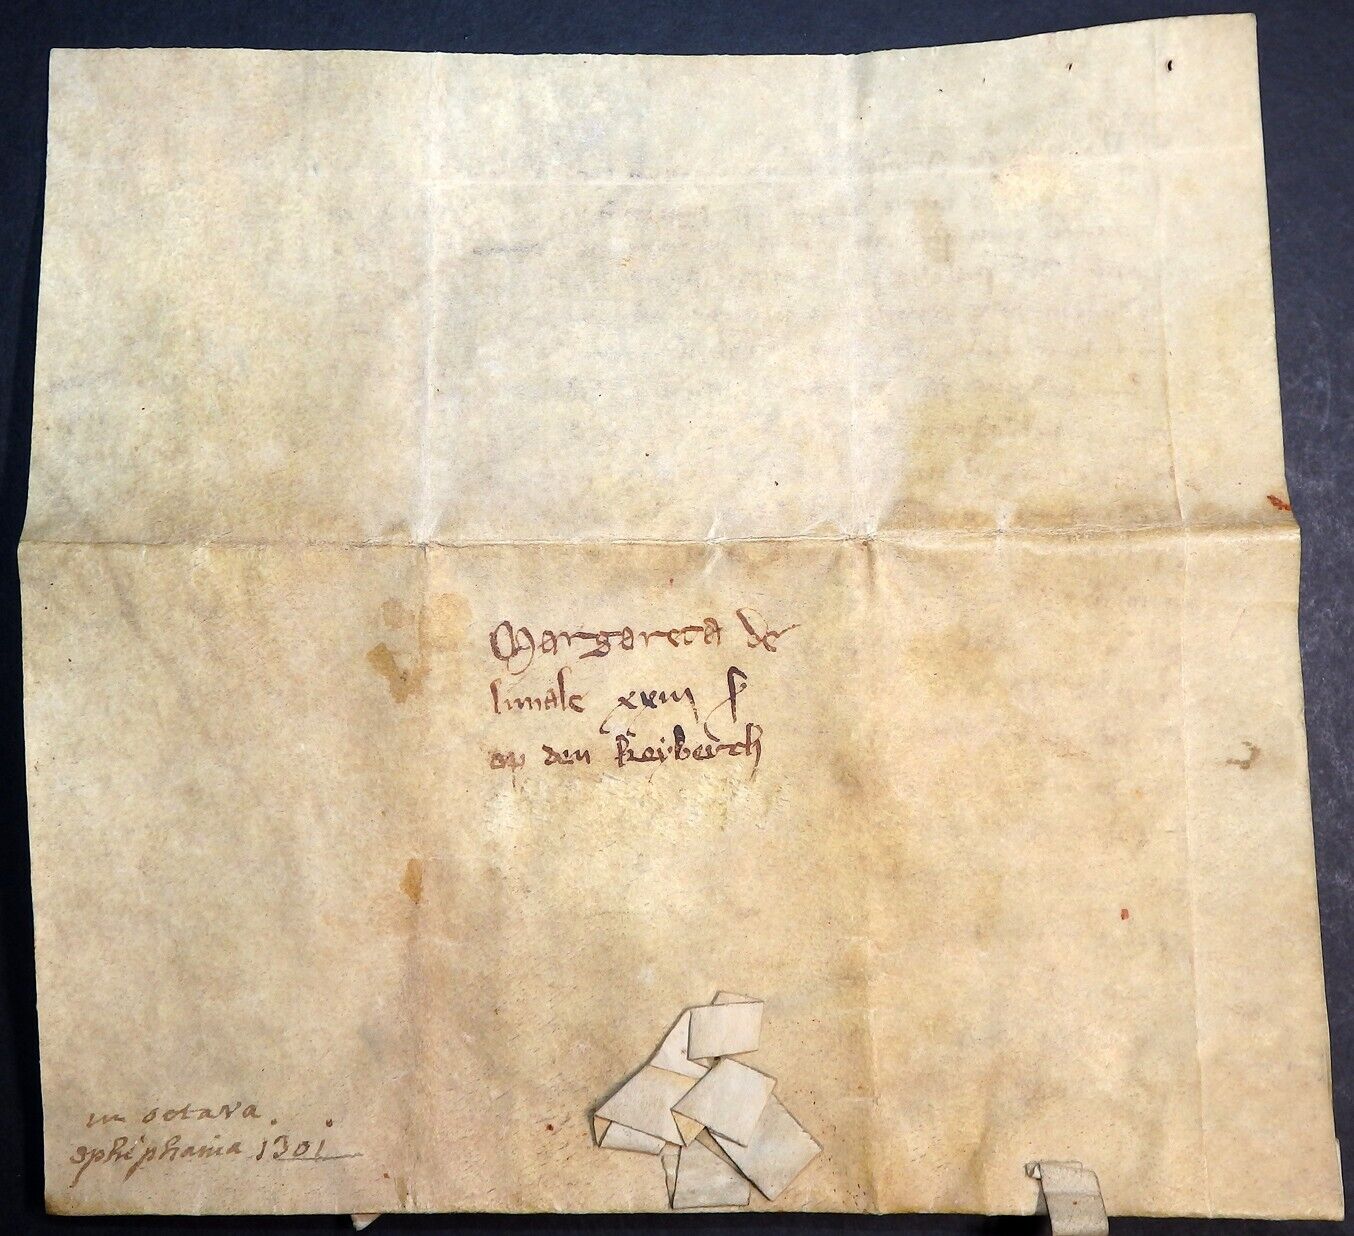 Margareta de
limale xxiii s
op den keyberch
in octava.
ephiphania 1301